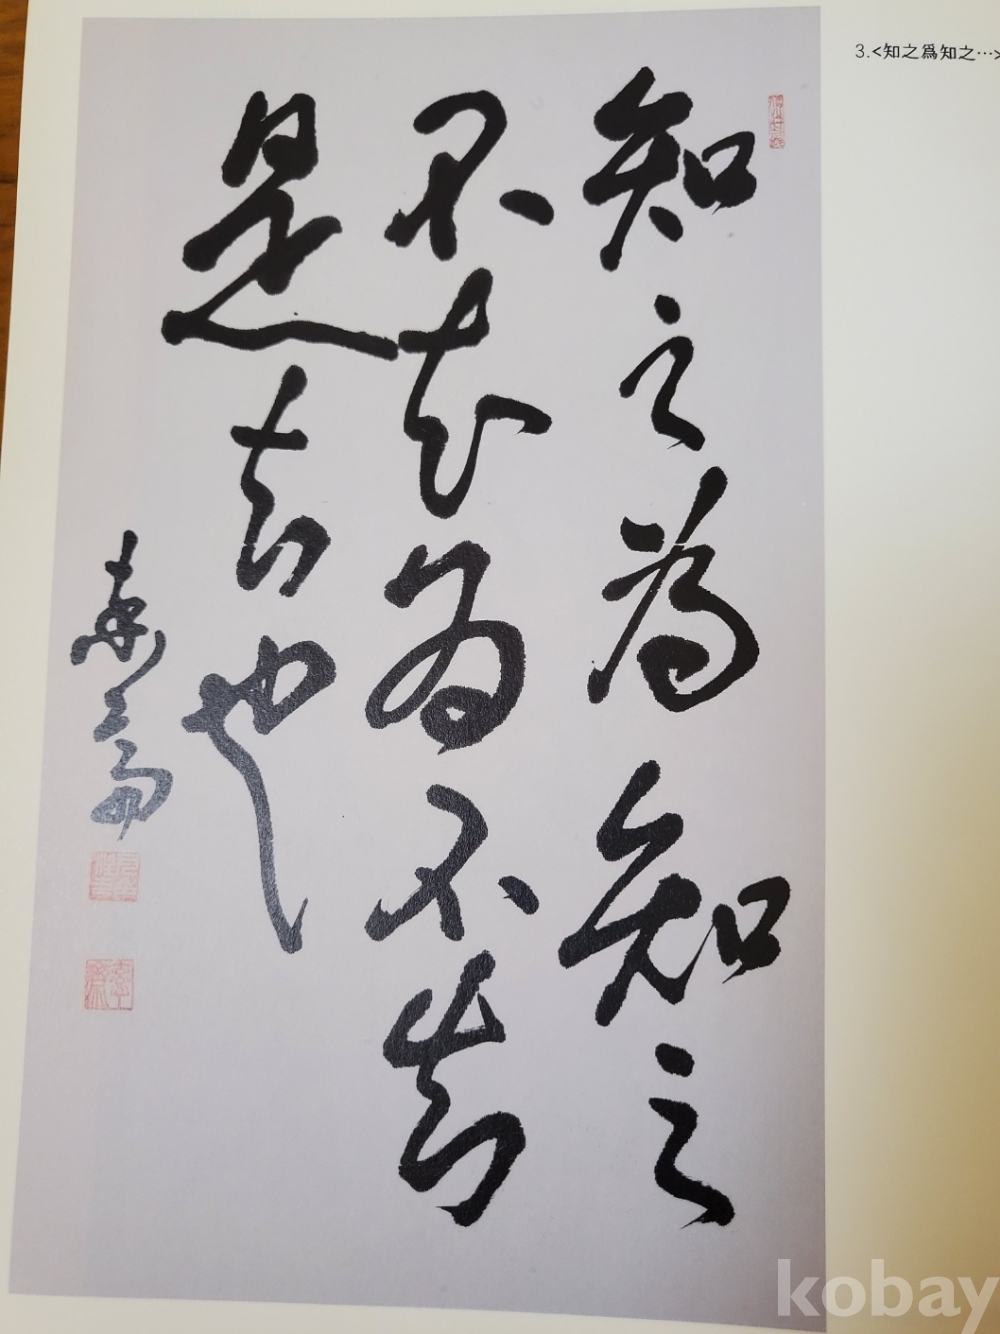 3.<知之爲知之…>
知之為知之
不知為不知
是知也
kobay